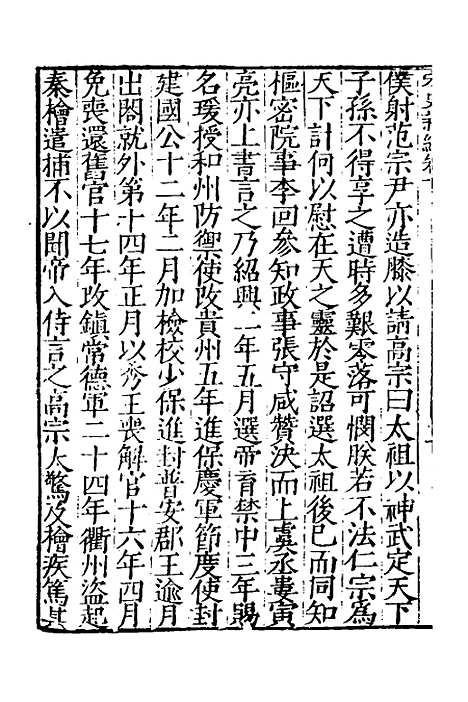 僕射范宗尹亦造膝以請高宗曰太祖以神武定天下
子孫不得享之遭時多艱零落可憫朕若不法仁宗為
天下計何以慰在天之靈於是詔選太祖後已而同知
樞密院事李回叅知政事張守咸贊決而上虞丞婁寅
亮亦上書言之乃紹興二年五月選帝育禁中三年賜
名瑗授和州防禦使改貴州五年進保慶軍節度使封
建國公十二年二月加檢校少保進封普安郡王逾月
出閤就外第十四年正月以秀王喪解官十六年四月
免喪還舊官十七年攺鎮常德軍二十四年衢州盗起
秦檜遣捕不以聞帝入侍言之高宗大驚及檜疾篤其